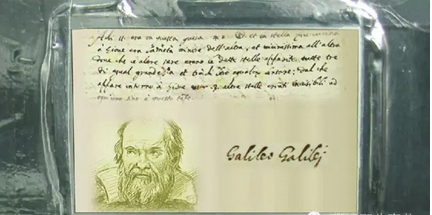 Adì 11 era in questa guisa et la stella più vicina
à Giove era la metà minore dell'altra, et vicinissima all'altra
dove che le altre sere erano le dette stelle apparite tutte tre
di egual grandezza et trà di loro egualmente lontane; dal che
appare intorno à Giove esser 3 altre stelle erranti invisibili ad
ogn'uno sino à questo tempo.
Galileo Galilej